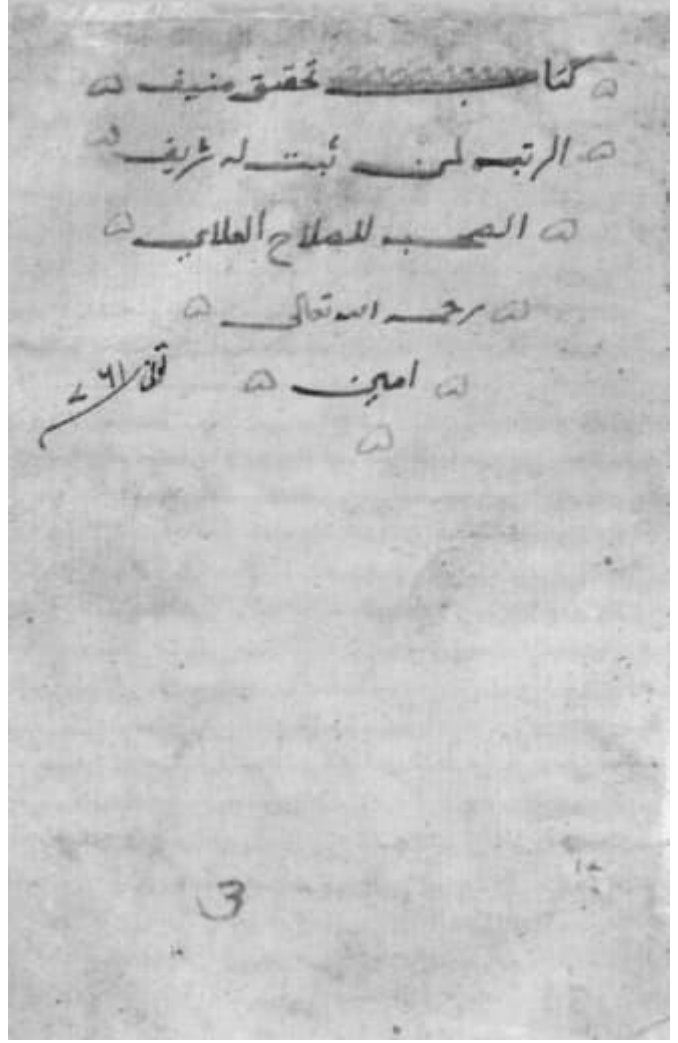 كتاب تحقيق منيف
الرتبه لمن ثبت له شريف
الصحبه للصلاح العلاي
رحمه الله تعالى
امين
توفى ٧٦١
3